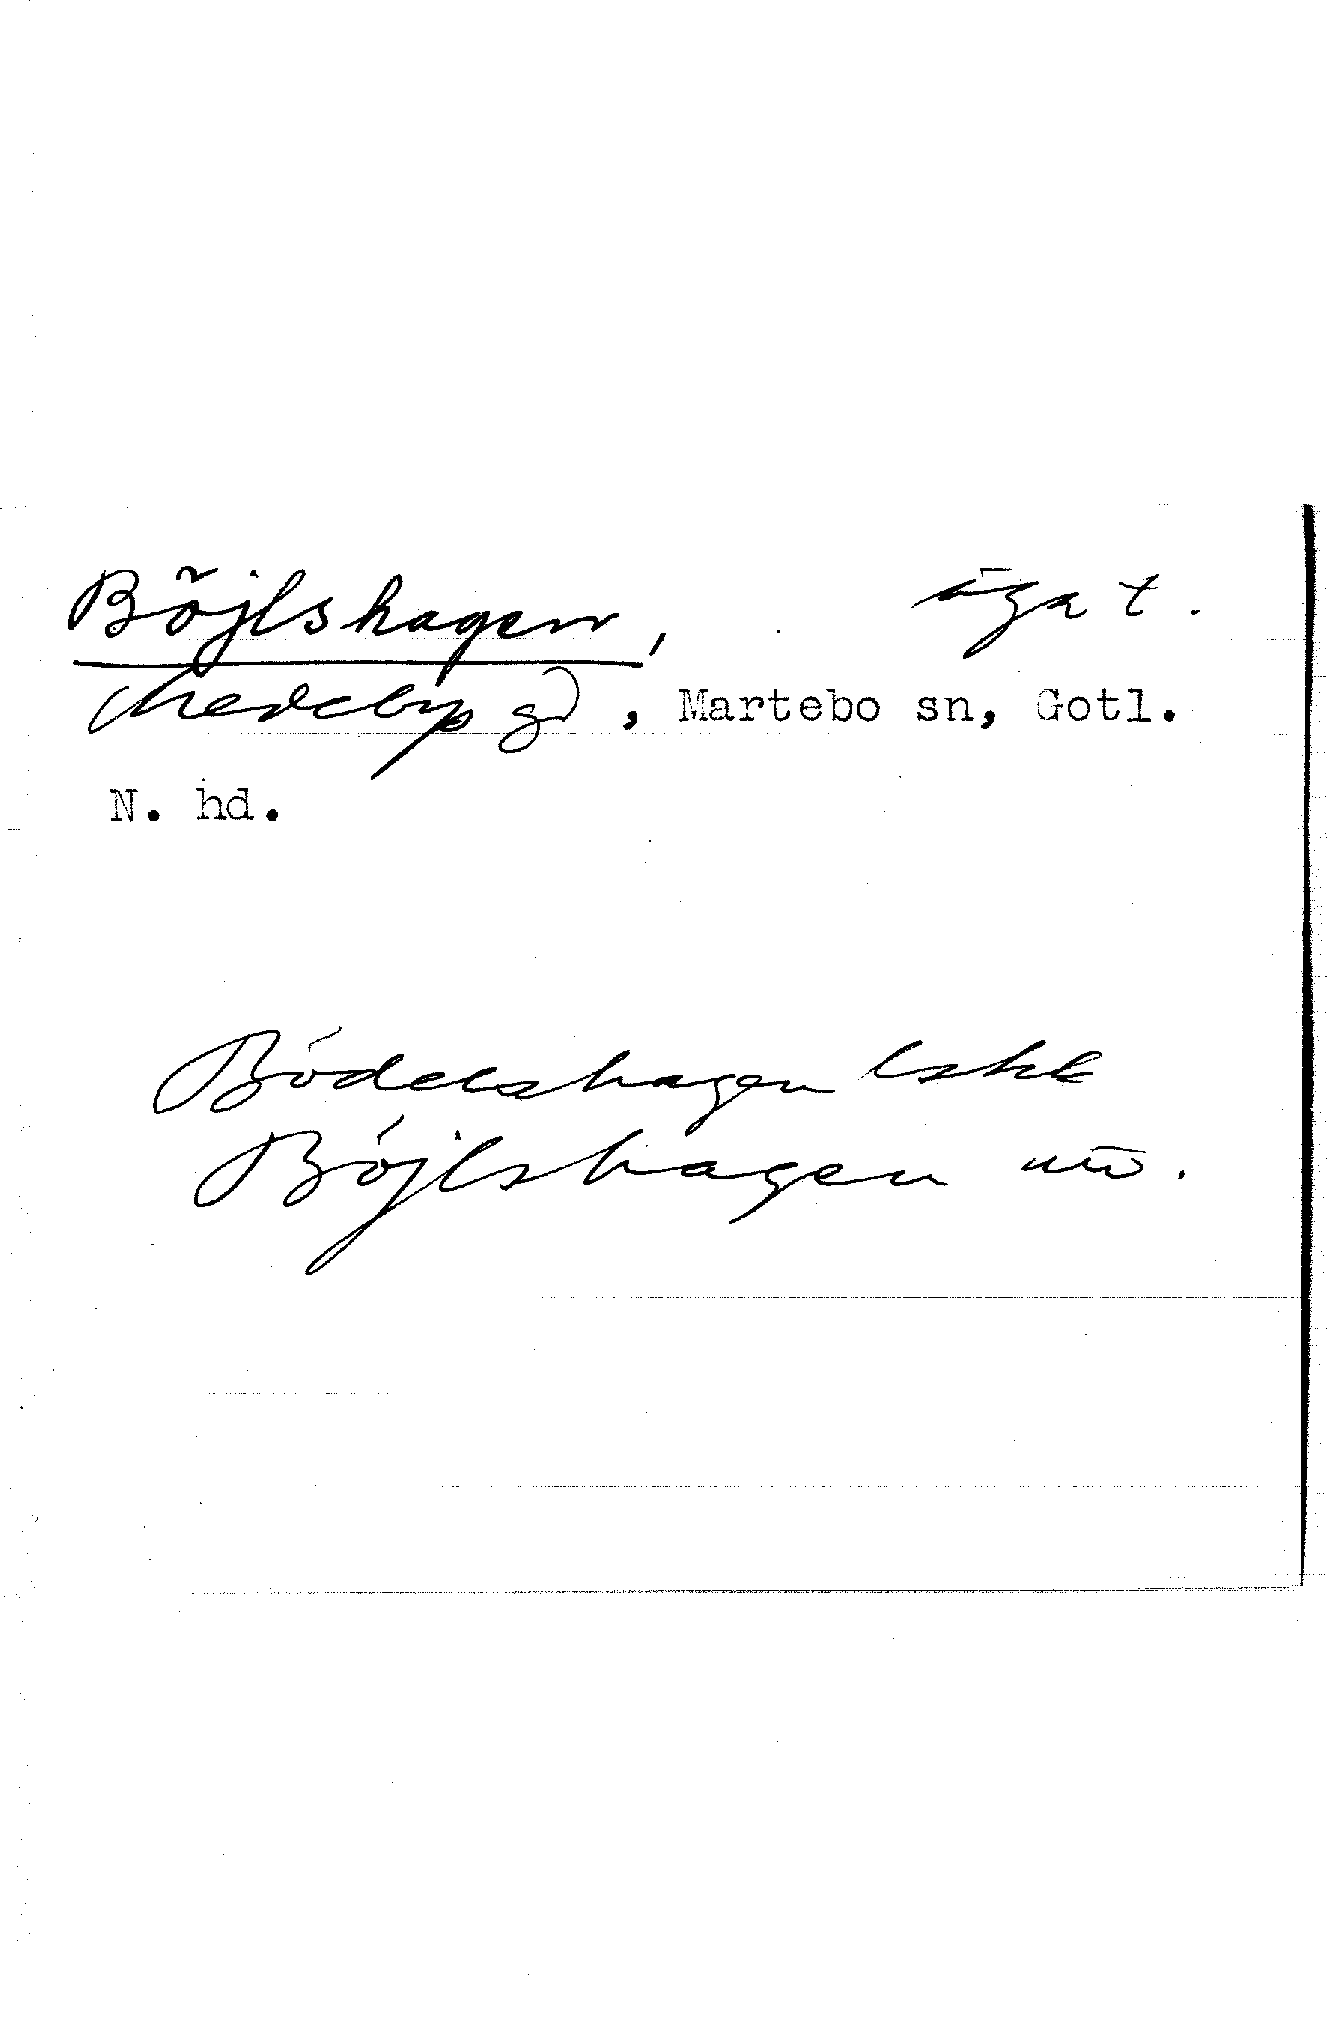 Böjlshagen, ägat.
Medeby gd, Martebo sn, Gotl.
N. hd.
Bödelshagen lskk
Böjlshagen uö.